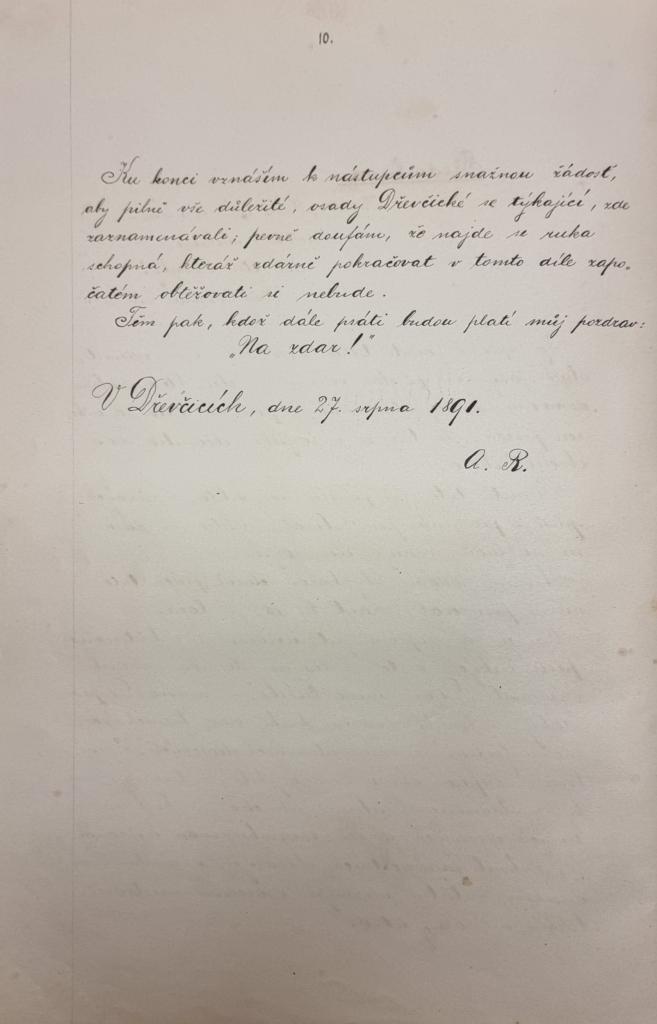 10.
Ku konci vznáším k nástupcům snažnou žádosť,
aby pilně vše důležité, osady Dřevčické se týkající, zde
zaznamenávali; pevně doufám, že najde se ruka
schopná, kteráž zdárně pokračovat v tomto díle zapo-
čatém obtěžovati si nebude.
Těm pak, kdož dále psáti budou platí můj pozdrav:
„Na zdar!"
V Dřevčicích, dne 27. srpna 1891.
A. R.